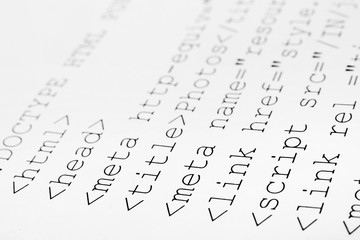 DOCTYPE HTML PUB
<html>
<head>
<meta http-equiv=
<title>Photos</tit
<meta name="resour
<link href="style.
<script src="/IN/j
<link rel ="
<me